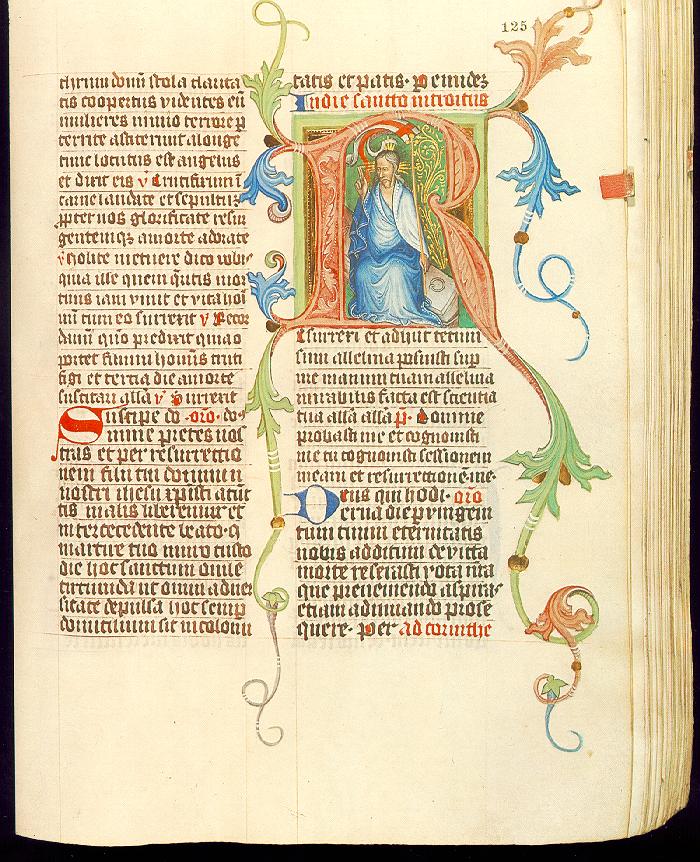 125
christum domini stola clarita
tis coopertus videntes eū
mulieres nimio terrore p
territe astiterunt a longe
tunc locutus est angelus
et dixit eis v Crucifixum ī
carne laudate et sepultū
ꝓpter nos glorificate resur
gentemqꝫ a morte adorate
v Nolite metuere dico vobis
quia ille quem q̄ritis mor
tuus iam vivit et vita hoī
nū cum eo surrexit v Recor
damī quō predixit quia o
portet filium hominis cruci
figi et tertia die a morte
suscitari all̄a v Surrexit
Suscipe do oro do
mine preces nos
tras et per resurrectio
nem filii tui domini n
nostri ihesu xpisti a cūc
tis malis liberemur et
intercedente beato q
martire tuo muro custo
die hoc sanctum ovile
circumda ut omni adver
sitate depulsa hoc semp
domicilium sit incolom
tatis et pacis Per eiusdem
In die sancto introitus
Resurrexi et adhuc tecum
sum alleluia posuisti sup
me manum tuam alleluia
mirabilis facta est scientia
tua all̄a all̄a p̄ Domine
probasti me et cognovisti
me tu cognovisti sessionem
meam et resurrectionē me
Deus qui hodi oro
erna die p unigeni
tum tuum eternitatis
nobis aditum devicta
morte reserasti vota nr̄a
que preveniendo aspiras
etiam adiuvando prose
quere Per ad corinthe